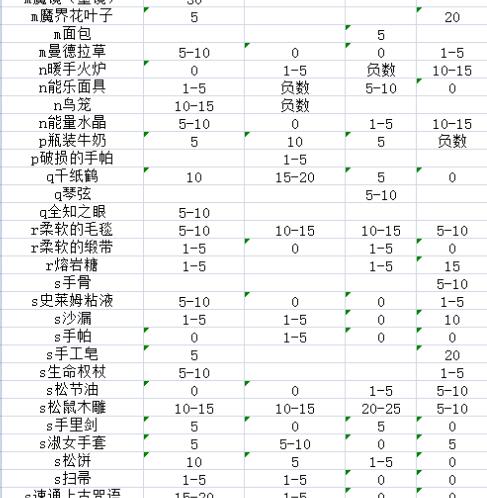 m魔界花叶子 5 20
m面包 5
m曼德拉草 5-10 0 0 1-5
n暖手火炉 0 1-5 负数 10-15
n能乐面具 1-5 负数 5-10 0
n鸟笼 10-15 负数
n能量水晶 5-10 0 1-5 10-15
p瓶装牛奶 5 10 5 负数
p破损的手帕 1-5
q千纸鹤 10 15-20 5 0
q琴弦 5-10
q全知之眼 5-10
r柔软的毛毯 5-10 10-15 10-15 5-10
r柔软的缎带 1-5 0 1-5 0
r熔岩糖 1-5 1-5 15
s手骨 5-10
s史莱姆粘液 5-10 0 0 1-5
s沙漏 1-5 1-5 0 10
s手帕 0 1-5 0 0
s手工皂 5 20
s生命权杖 5-10 1-5
s松节油 0 0 1-5 5-10
s松鼠木雕 10-15 10-15 20-25 5-10
s手里剑 5 0 5 0
s淑女手套 5 5-10 0 5
s松饼 10 5 1-5 0
s扫帚 1-5 1-5 0 0
s速通上古咒语 15-20 1-5 0 0